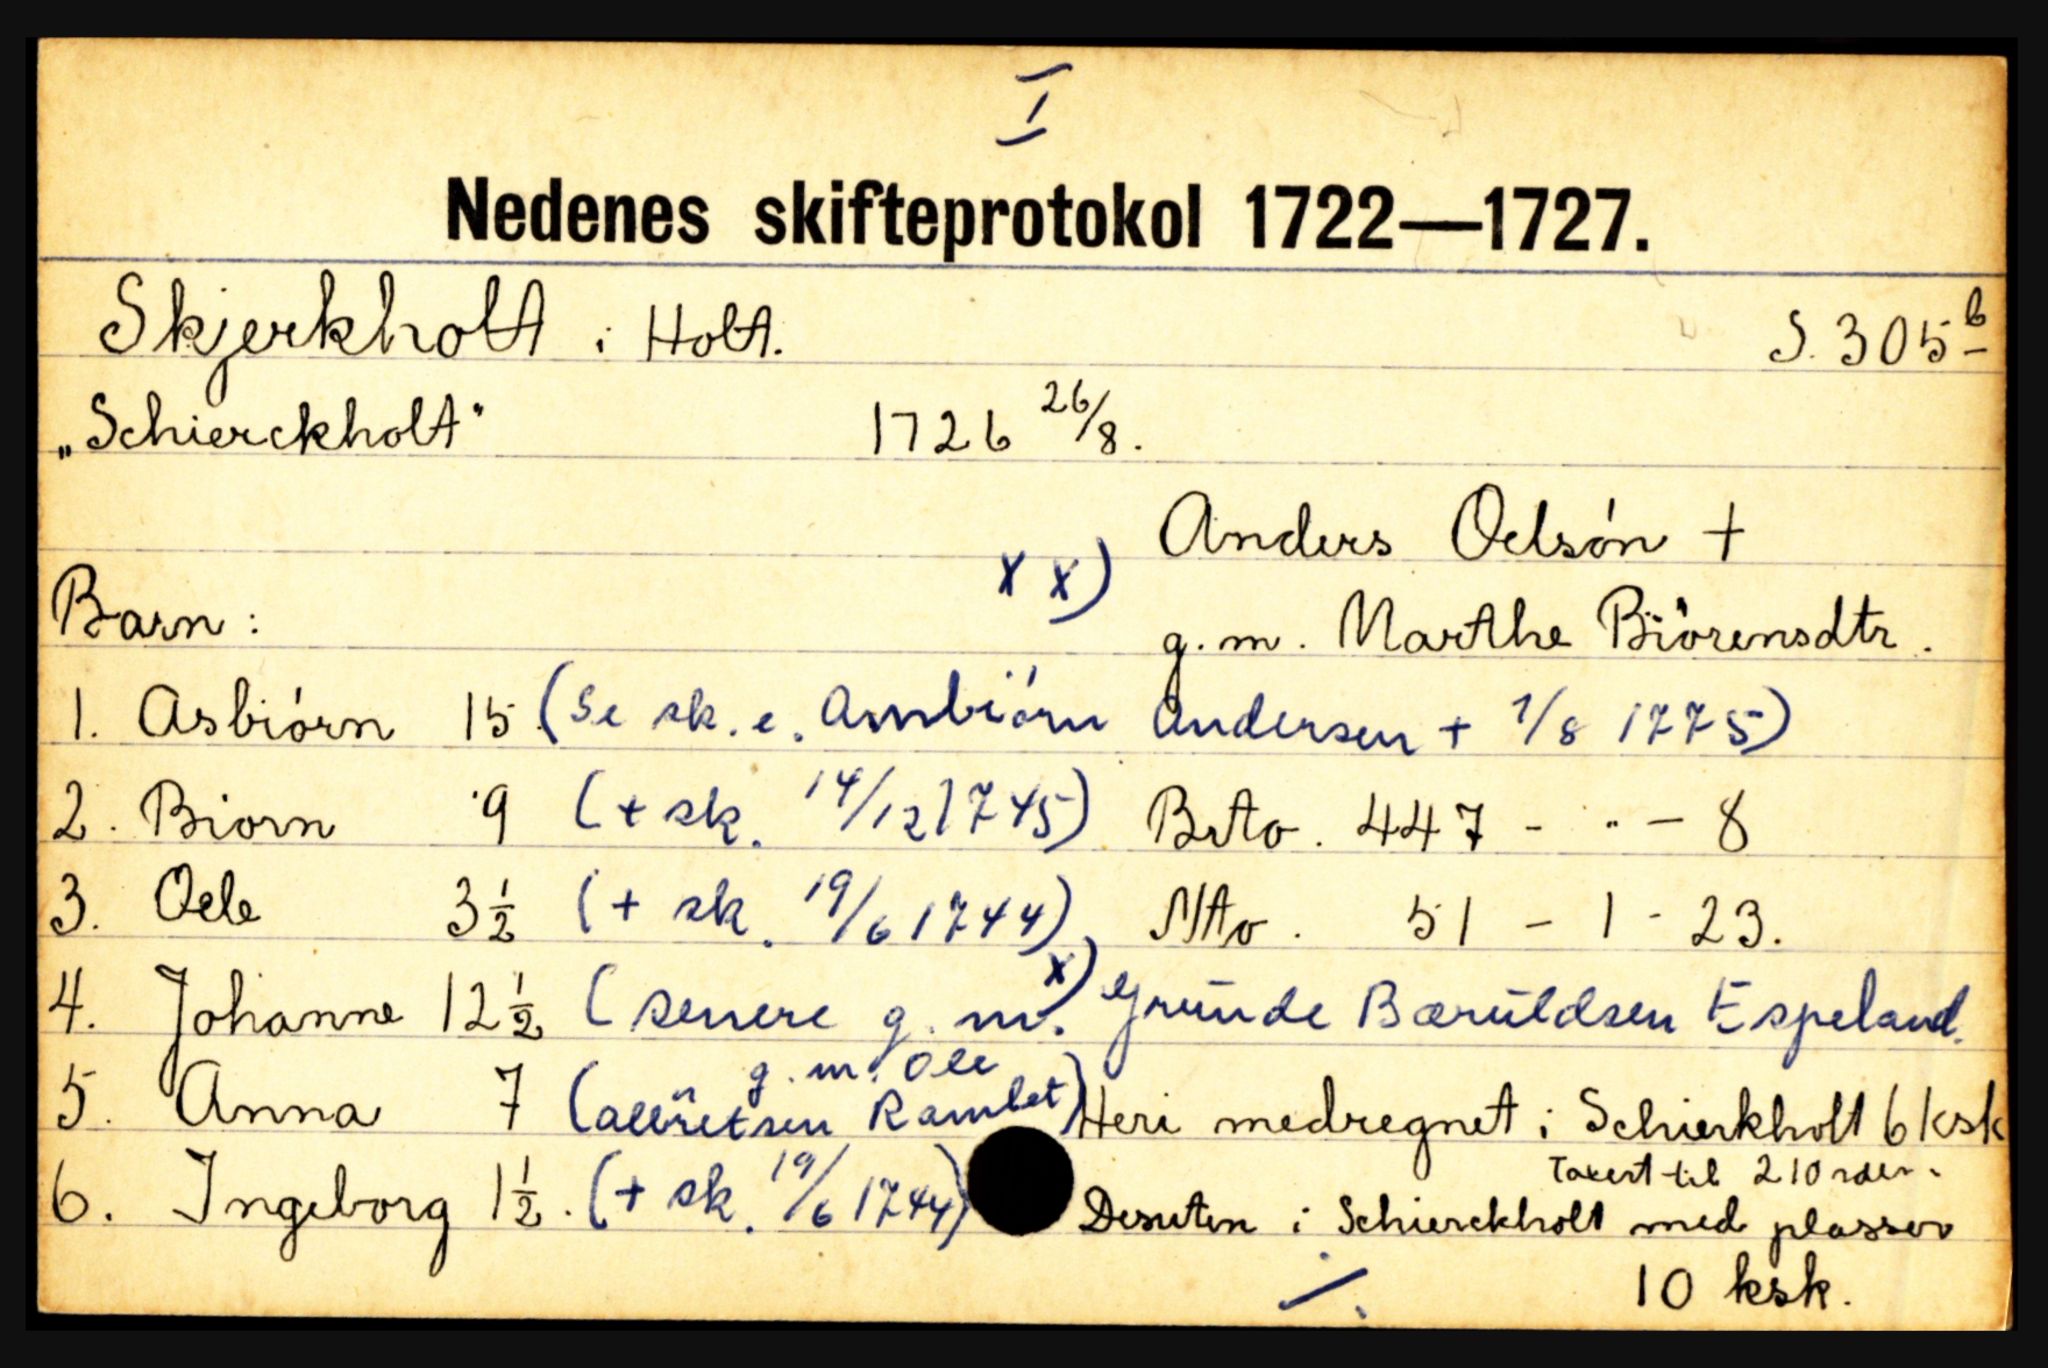 I
Nedenes skifteprotokol 1722—1727.
Skjerkholt i Holt. S. 305 b
„Schierckholt" 1726 26/8.
Anders Oelsón +
Barn: x x) g.m. Marthe Biörensdtr.
1. Asbiórn 15 (Se sk. e. Ambiórn Andersen + 1/8 1775)
2. Biorn 9 (+ sk. 14/12 1745) Btto. 447 - " - 8
3. Oele 3½ (+ sk. 19/6 1744) Ntto. 51 - 1 - 23.
4. Johanne 12½ (senere g.m. x) Grunde Bæruldsen Espeland.
g.m. Ole
5. Anna 7 (Allüretsen Ramlet) Heri medregnet i Schierkholt 6 ksk
Taxert til 210 rdlr.
6. Ingeborg 1½. (+ sk. 19/6 1744) Desuten i Schierckholt med plasser
10 ksk.
./.